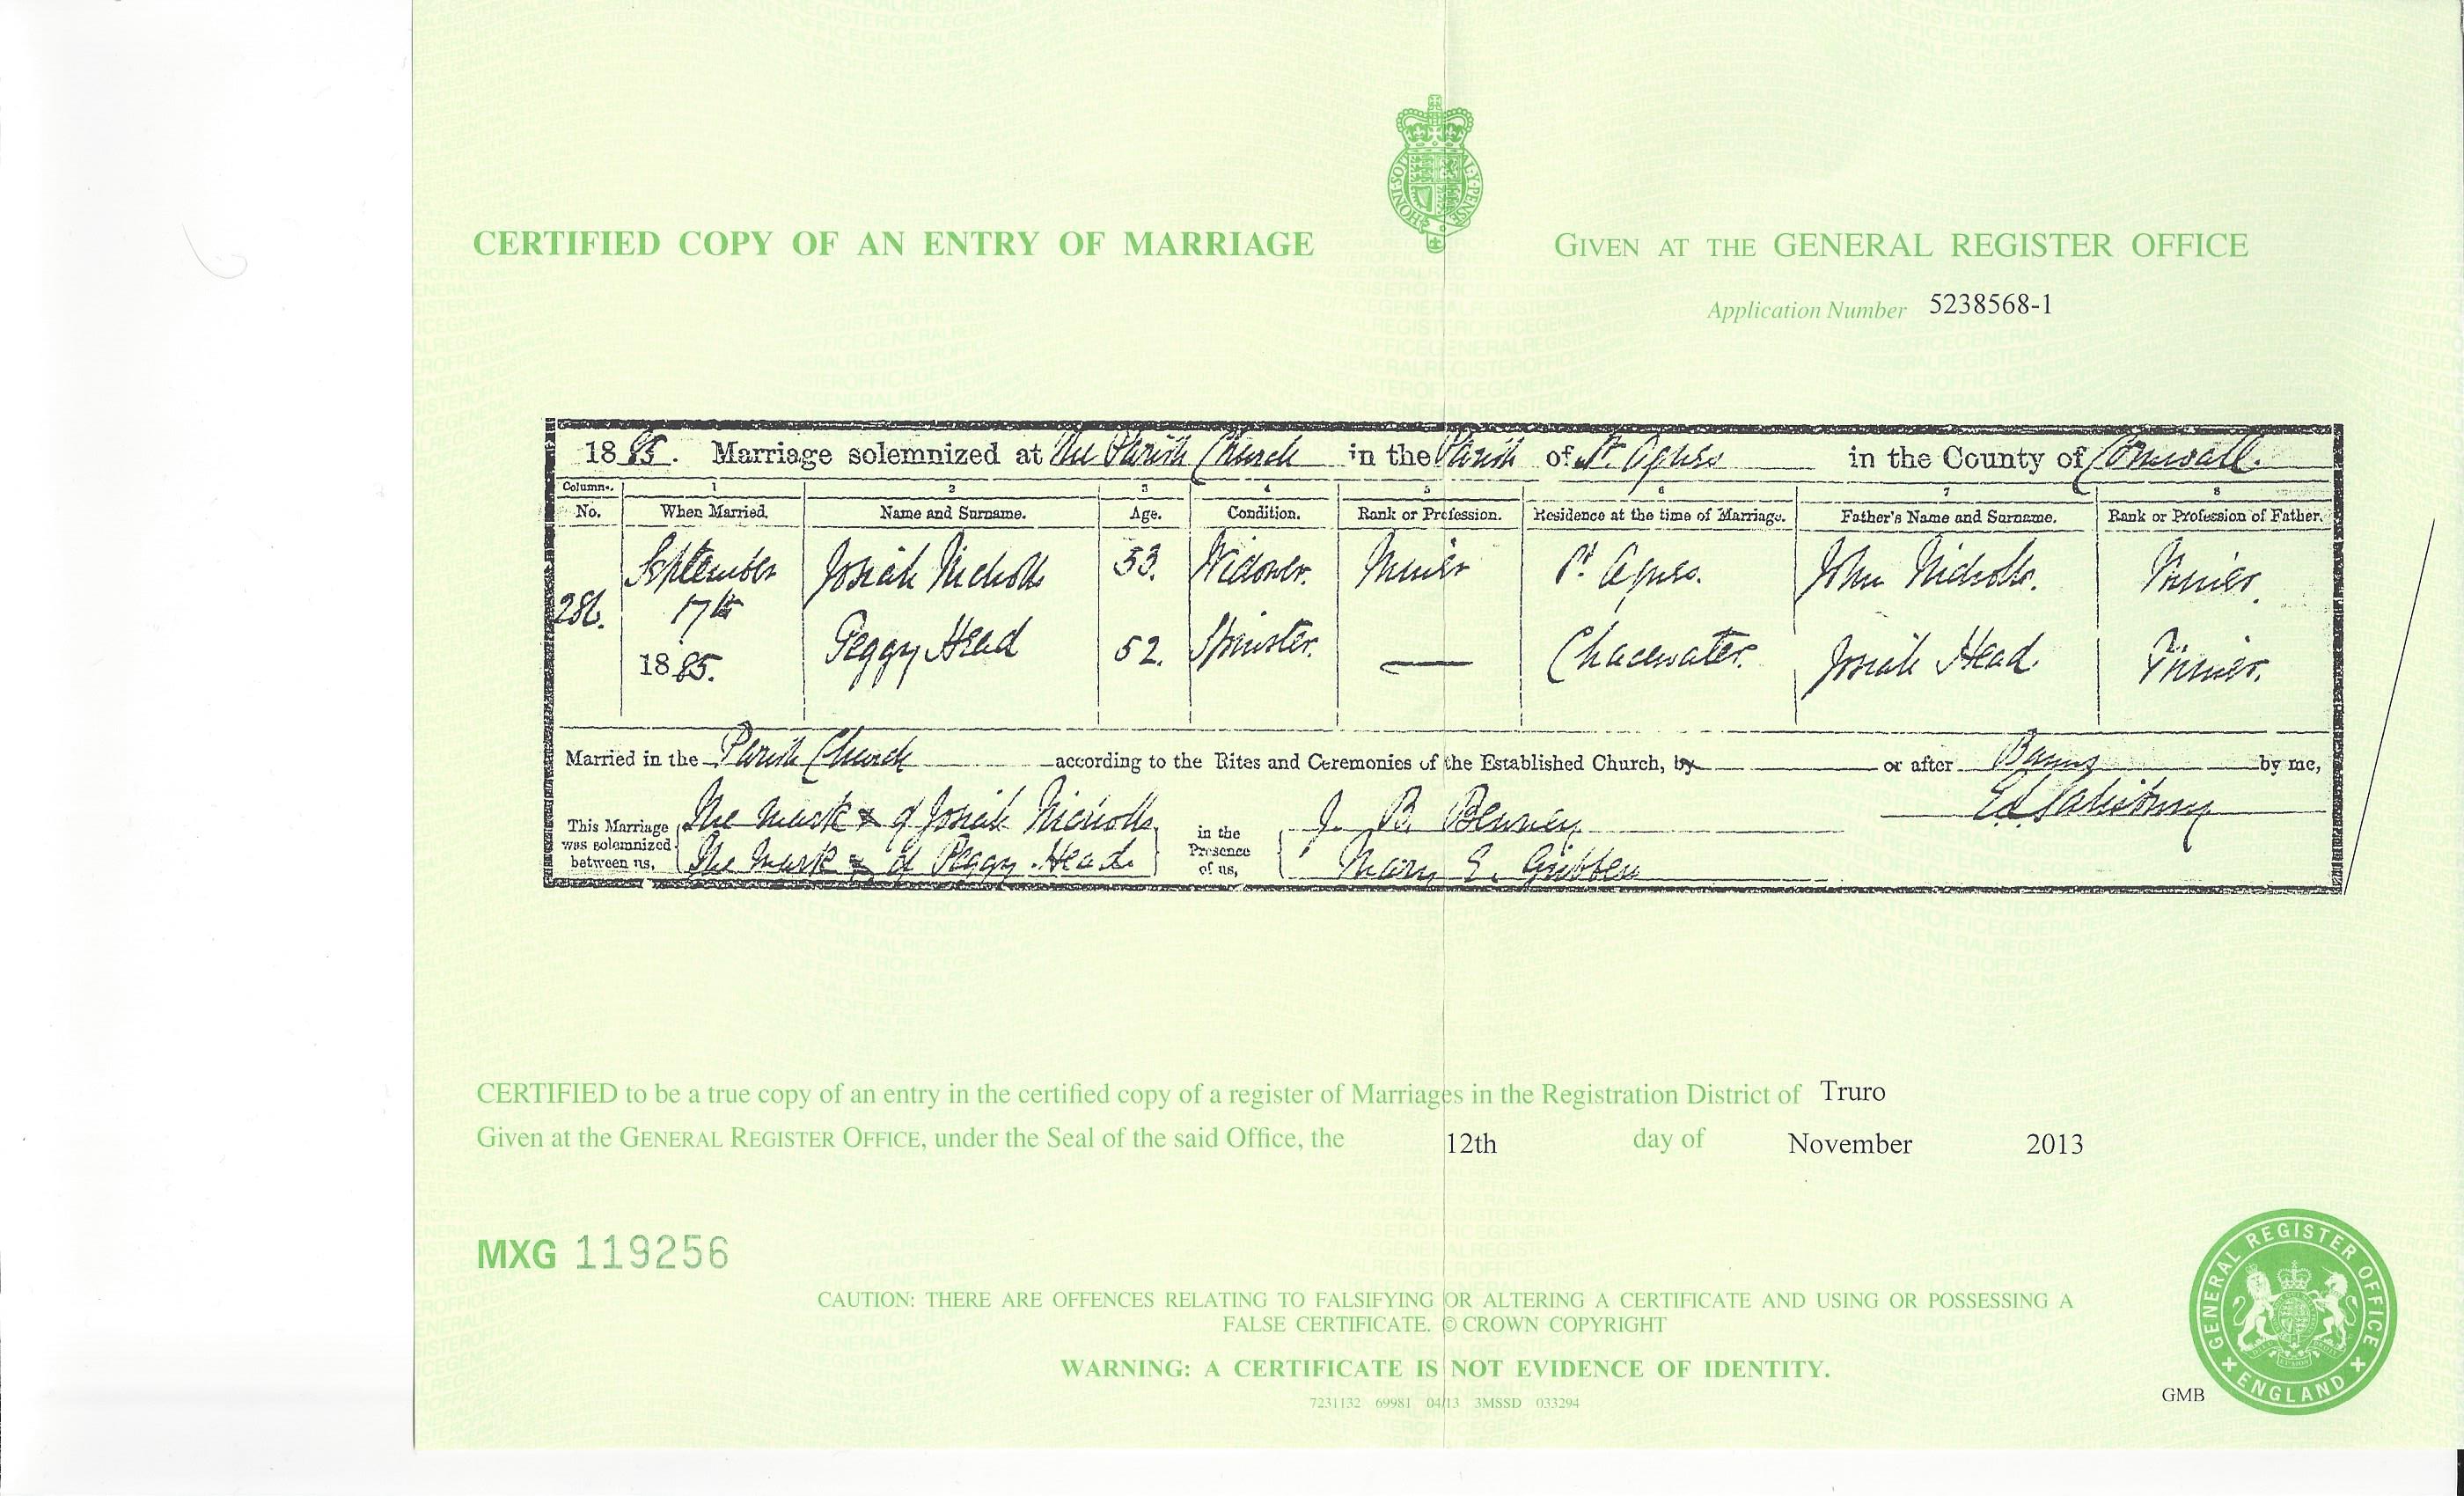 HONI·SOIT
Y·PENSE
CERTIFIED COPY OF AN ENTRY OF MARRIAGE
GIVEN AT THE GENERAL REGISTER OFFICE
Application Number 5238568-1
1885. Marriage solemnized at The Parish Church in the Parish of St. Agnes in the County of Cornwall.
Columns. 1 2 3 4 5 6 7 8
No. When Married. Name and Surname. Age. Condition. Rank or Profession. Residence at the time of Marriage. Father's Name and Surname. Rank or Profession of Father.
September Josiah Nicholls 53. Widower. Miner St Agnes. John Nicholls. Miner.
286. 17th
1885. Peggy Head 52. Spinster. — Chacewater. Josiah Head. Miner.
Married in the Parish Church according to the Rites and Ceremonies of the Established Church, by or after Banns by me,
This Marriage was solemnized between us,
The mark x of Josiah Nicholls.
The mark x of Peggy Head.
in the Presence of us,
J. B. Benney
Mary E. Gribben
Ed Salisbury
CERTIFIED to be a true copy of an entry in the certified copy of a register of Marriages in the Registration District of Truro
Given at the GENERAL REGISTER OFFICE, under the Seal of the said Office, the 12th day of November 2013
MXG 119256
CAUTION: THERE ARE OFFENCES RELATING TO FALSIFYING OR ALTERING A CERTIFICATE AND USING OR POSSESSING A
FALSE CERTIFICATE. © CROWN COPYRIGHT
WARNING: A CERTIFICATE IS NOT EVIDENCE OF IDENTITY.
7231132 69981 04/13 3MSSD 033294
GMB
GENERAL REGISTER OFFICE
ENGLAND